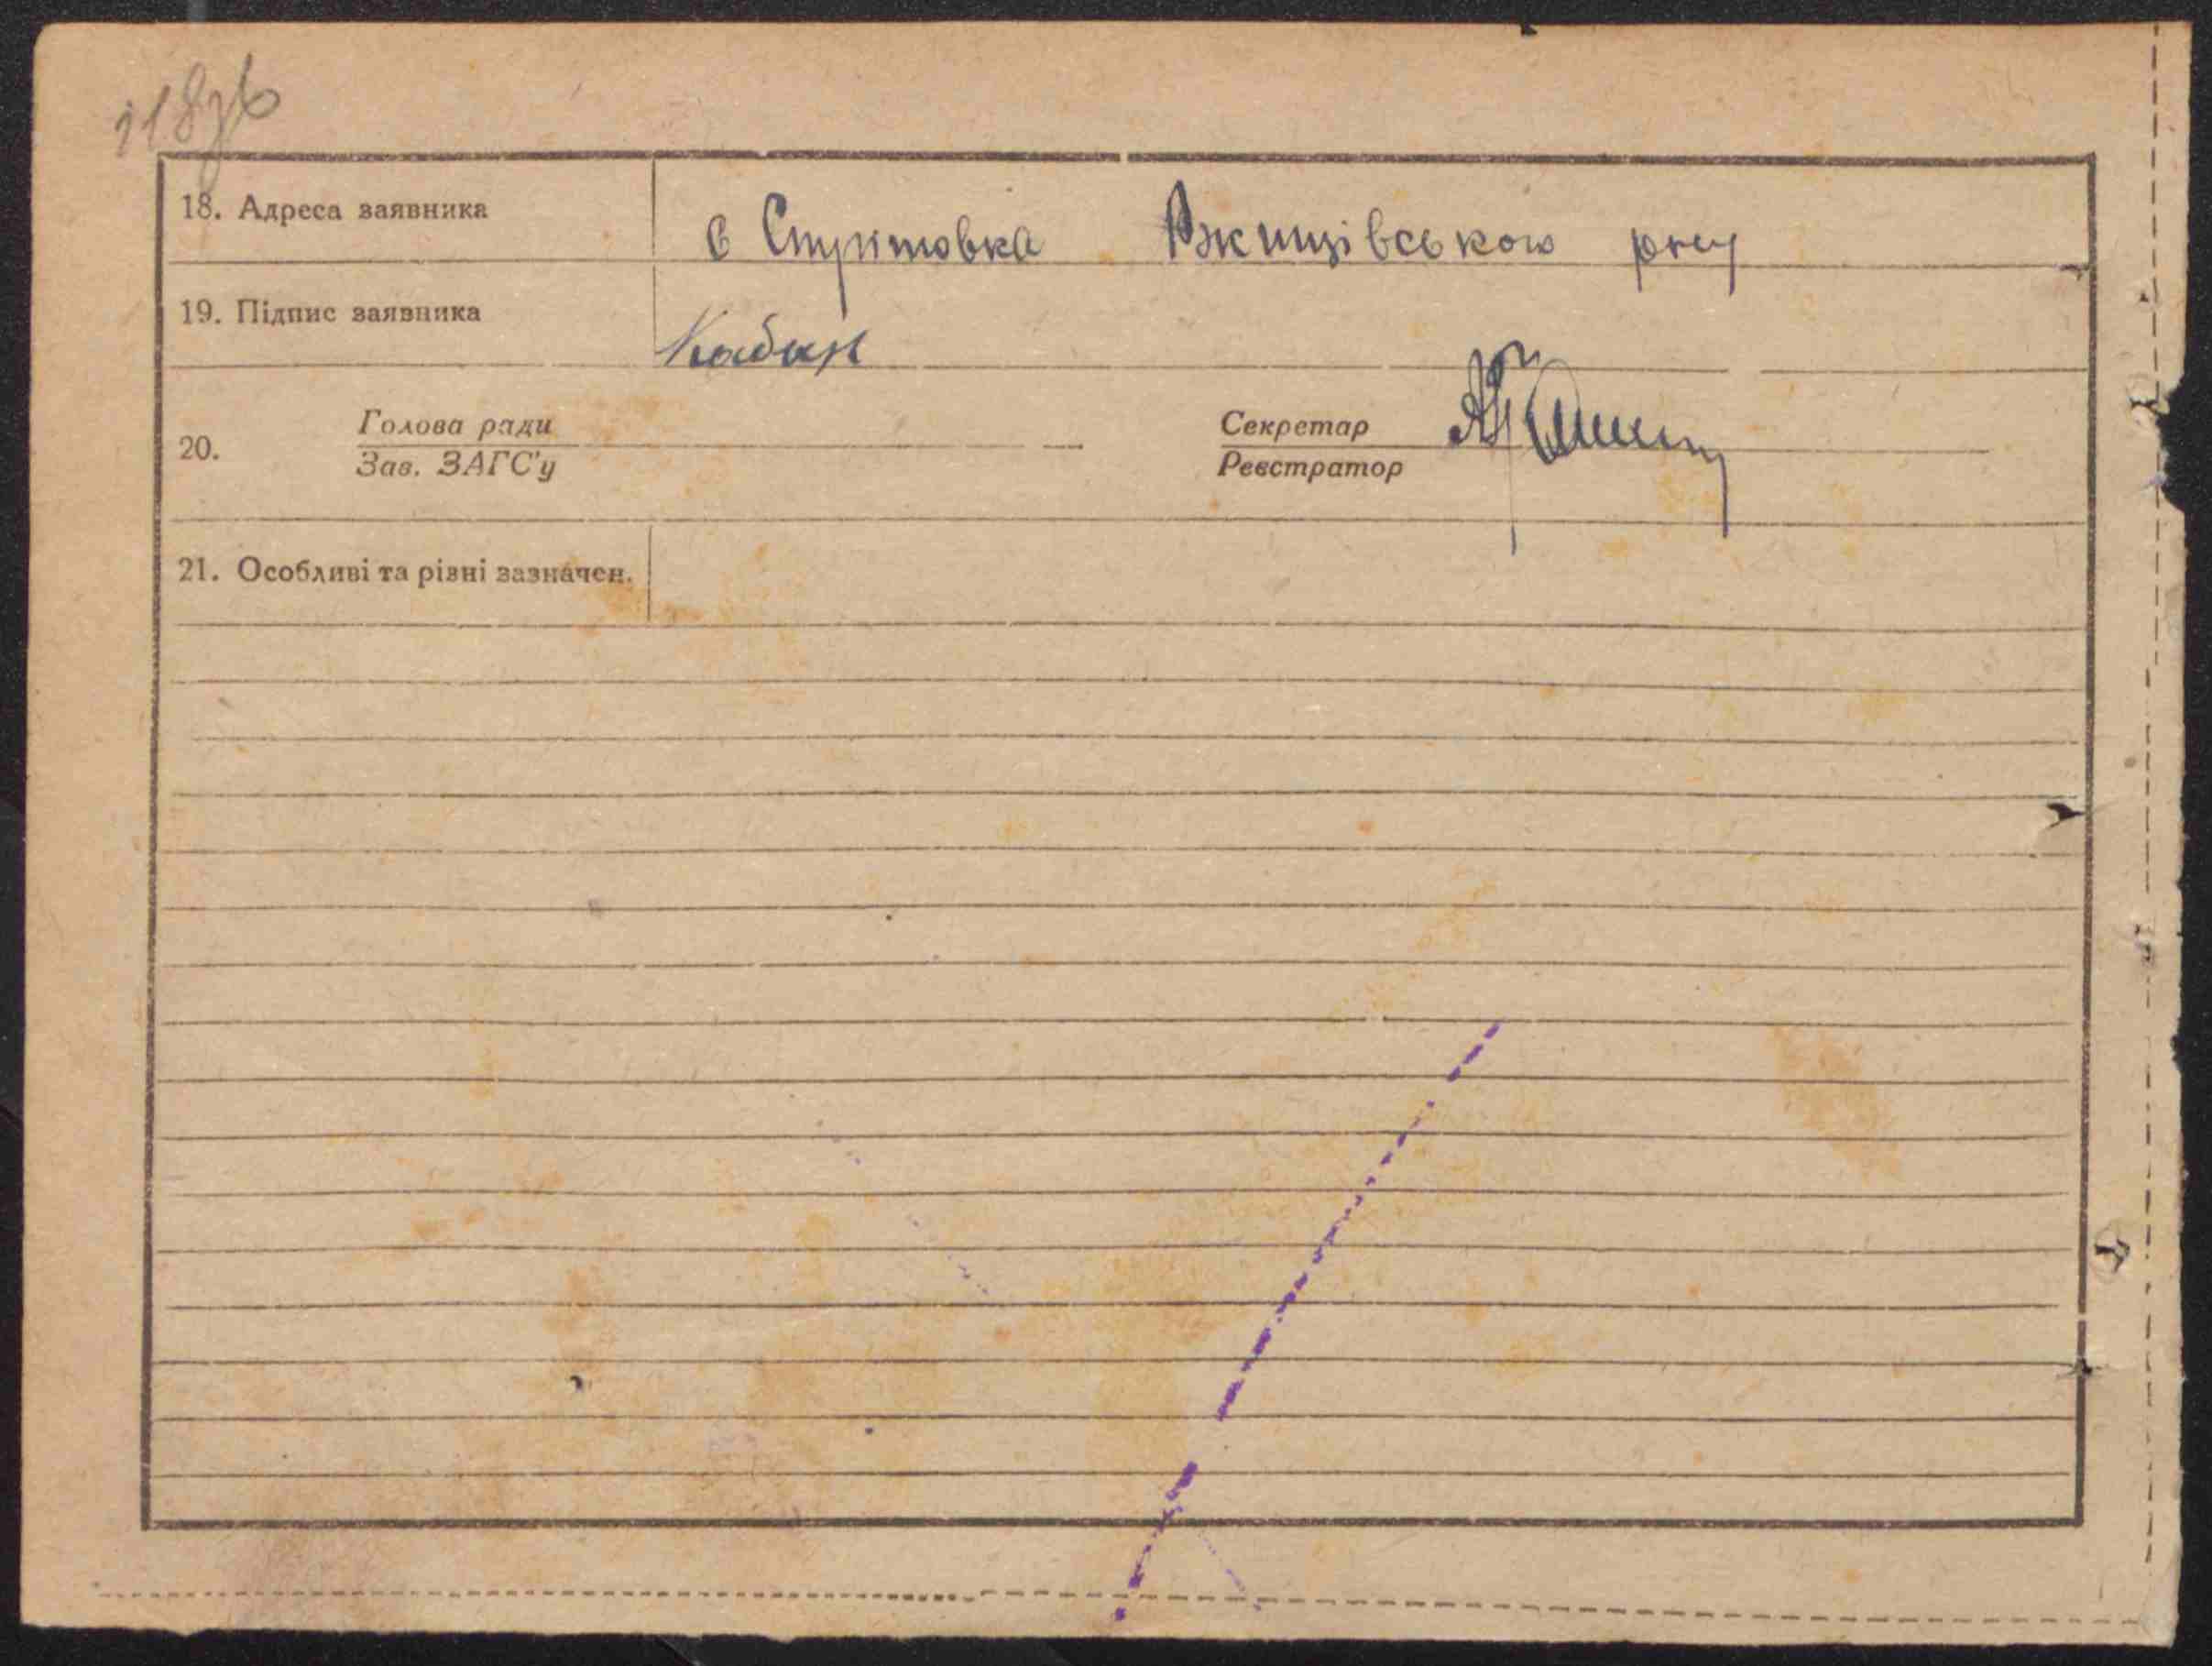 118зв
18. Адреса заявника с Стритовка Ржищівського р-ну
19. Підпис заявника Кабан
20. Голова ради Секретар
Зав. ЗАГС'у Реєстратор
21. Особливі та різні зазначен.